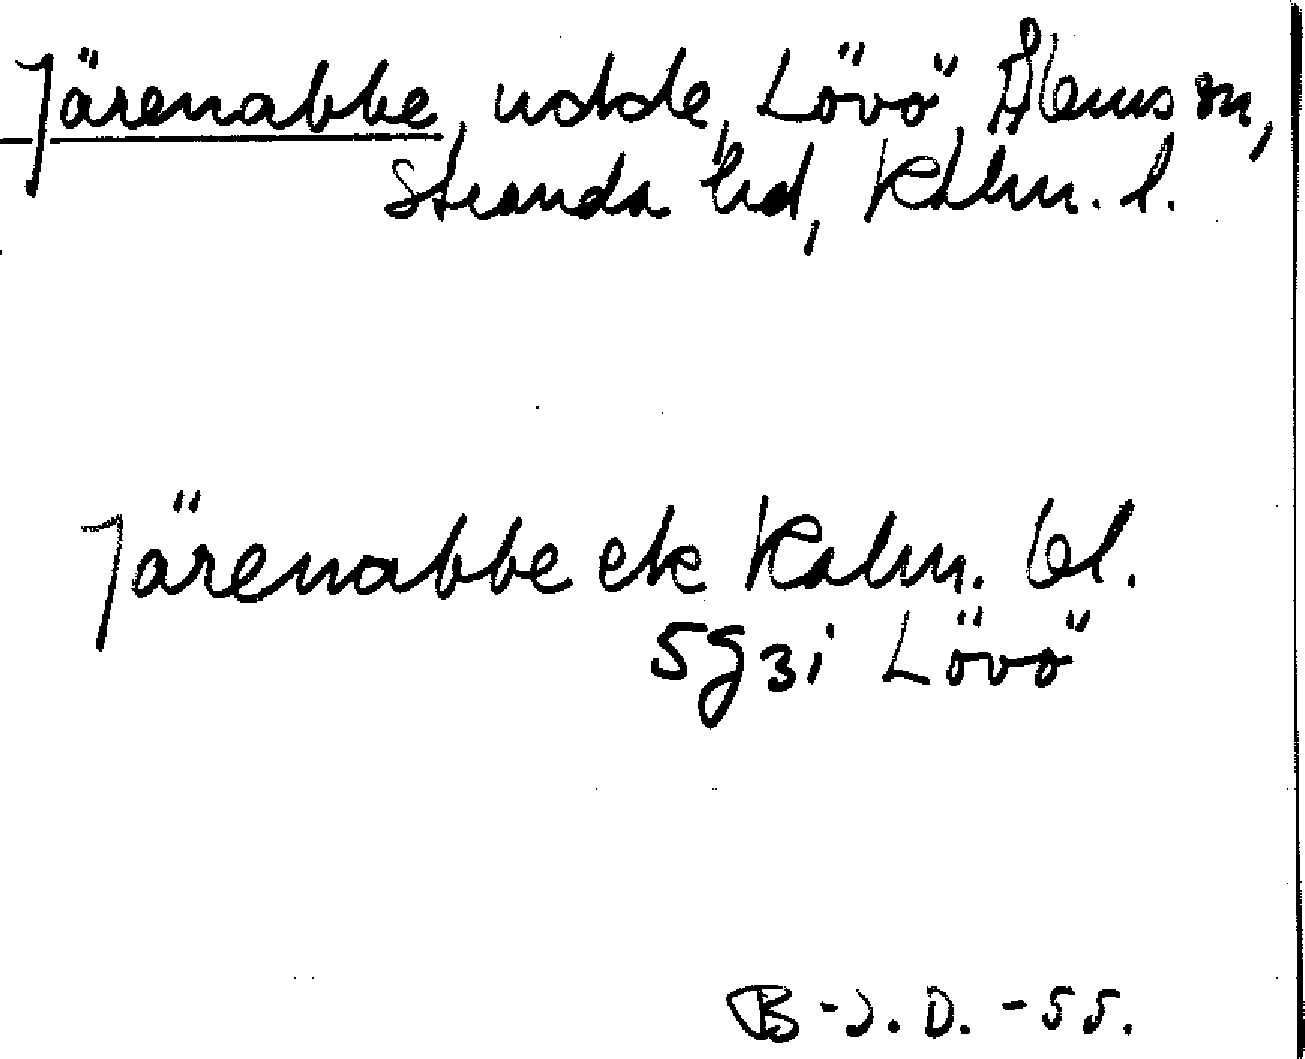 Järenabbe, udde, Lövö, Ålems sn,
Stranda hd, Kalm. l.
Järenabbe ek Kalm. bl.
5g3i Lövö
B-J.D. -55.